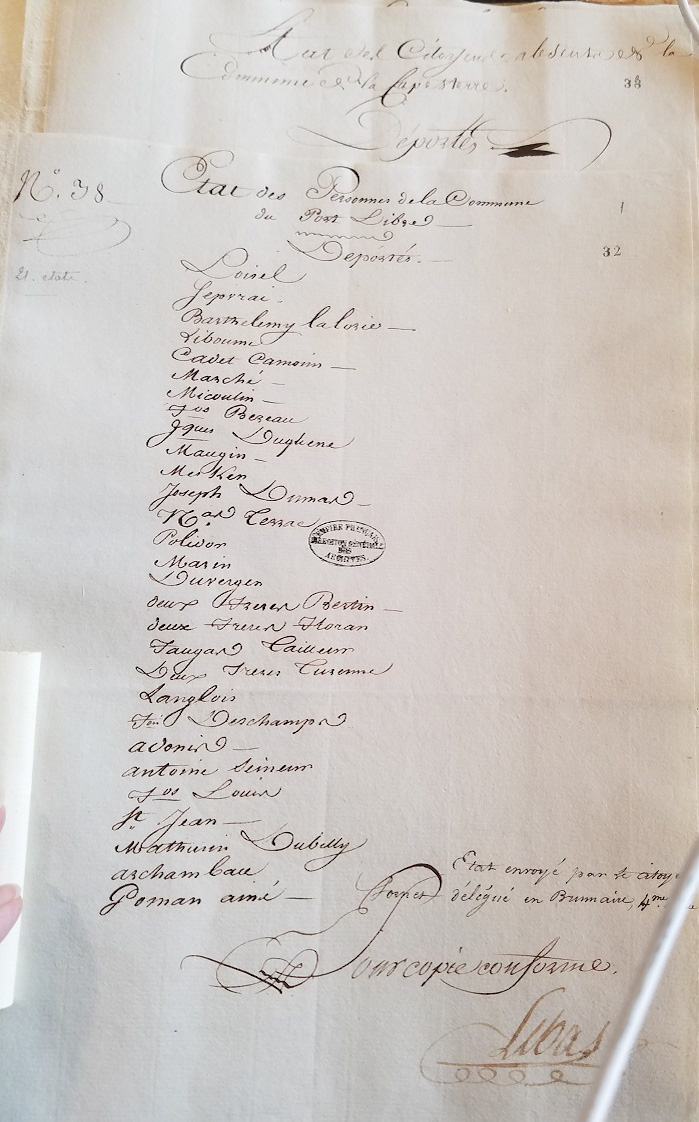 Etat des Citoyens absents de la
Commune de la Capesterre.
38
Déportés
N.º 38
Etat des Personnes de la Commune
du Port Libre
1
Déportés.
32
21. etats.
Loisel
Barthelemy lalosie
Liboume
Cadet Camoin
Marché
Micoulin
Jos Bezeau
Jques Duquene
Maugin
Merken
Joseph Dumas
Nas Terrac
Polidor
Marin
Duverger
deux Freres Bertin
deux Freres Floran
Faugas Tailleur
Deux Freres Turenne
Langlois
Deschamps
adonis
antoine Seineur
Jos Louis
St. Jean
Mathurin Dubilly
archambau
Goman ainé
EMPIRE FRANÇAIS
DIRECTION GÉNÉRALE
DES
ARCHIVES.
Etat envoyé par le citoye
délégué en Brumaire, 4me
Pour copie conforme.
Lebas